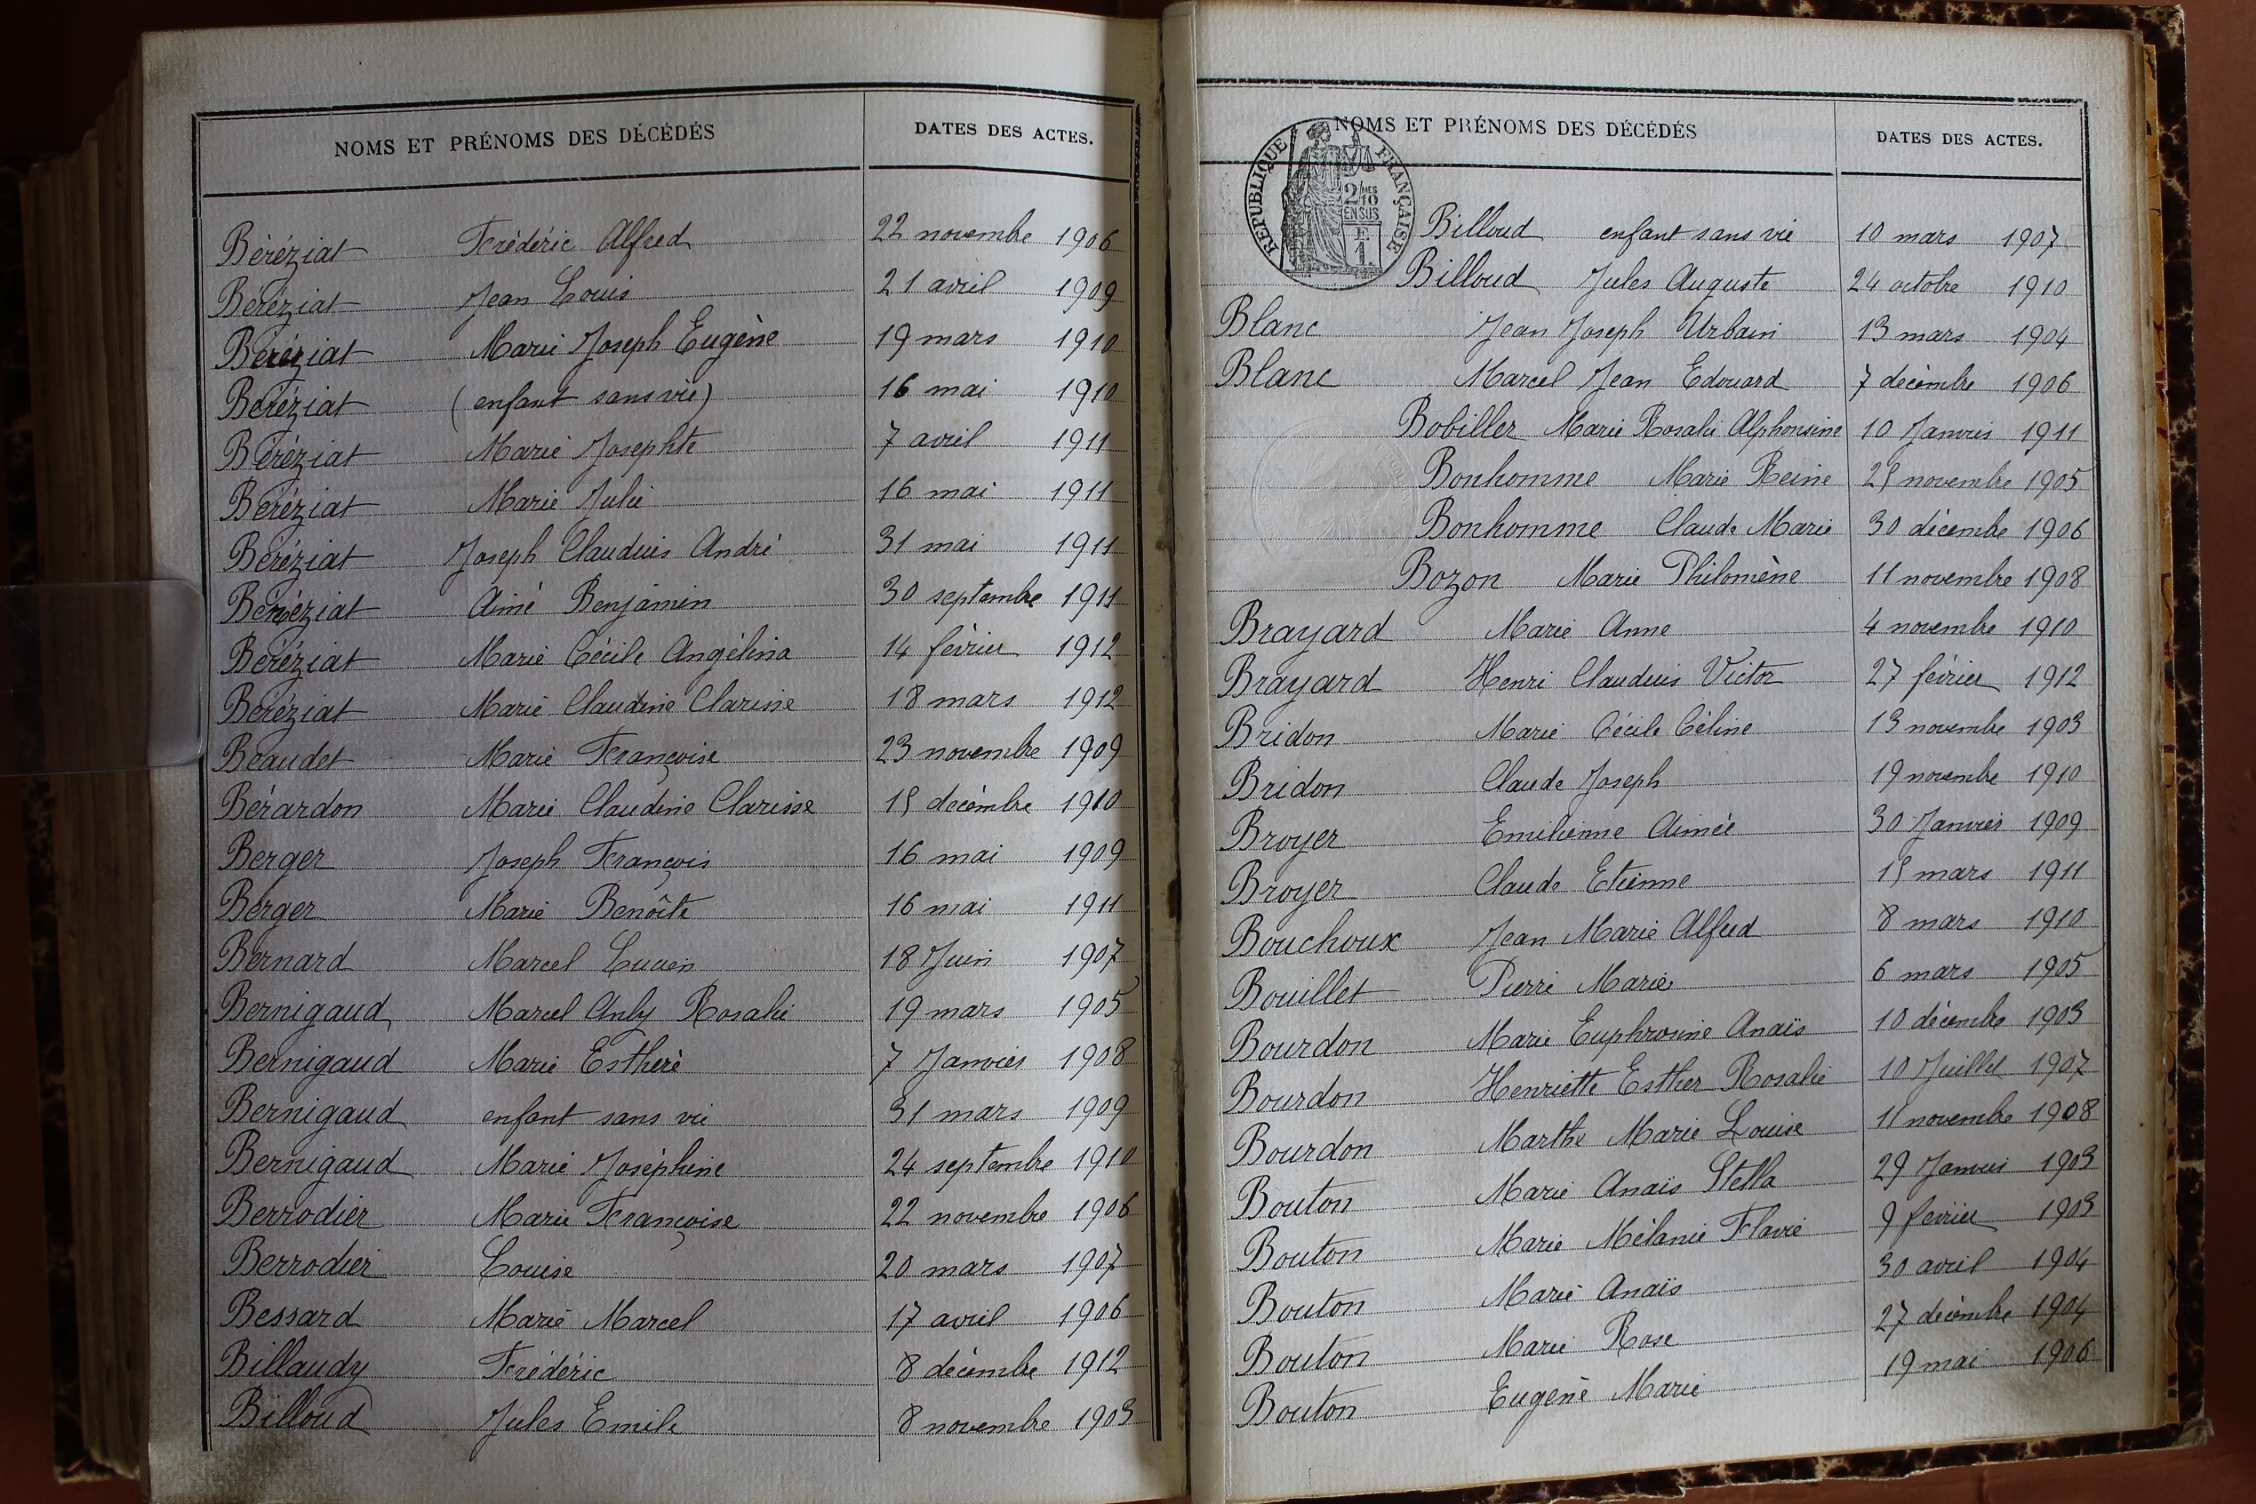 NOMS ET PRÉNOMS DES DÉCÉDÉS DATES DES ACTES.
Béréziat Frédéric Alfred 22 novembre 1906
Béréziat Jean Louis 21 avril 1909
Béréziat Marie Joseph Eugène 19 mars 1910
Béréziat (enfant sans vie) 16 mai 1910
Béréziat Marie Josephte 7 avril 1911
Béréziat Marie Julie 16 mai 1911
Béréziat Joseph Claudius André 31 mai 1911
Béréziat Aimé Benjamin 30 septembre 1911
Béréziat Marie Cécile Angélina 14 février 1912
Béréziat Marie Claudine Clarisse 18 mars 1912
Beaudet Marie Françoise 23 novembre 1909
Bérardon Marie Claudine Clarisse 15 décembre 1910
Berger Joseph François 16 mai 1909
Berger Marie Benoîte 16 mai 1911
Bernard Marcel Lucien 18 Juin 1907
Bernigaud Marcel Rosalie 19 mars 1905
Bernigaud Marie Esthère 7 Janvier 1908
Bernigaud enfant sans vie 31 mars 1909
Bernigaud Marie Joséphine 24 septembre 1910
Berrodier Marie Françoise 22 novembre 1906
Berrodier Louise 20 mars 1907
Bessard Marie Marcel 17 avril 1906
Billaudy Frédéric 8 décembre 1912
Billoud Jules Emile 8 novembre 1903
NOMS ET PRÉNOMS DES DÉCÉDÉS DATES DES ACTES.
RÉPUBLIQUE FRANÇAISE
2/10 MES
EN SUS
E
1.
Billoud enfant sans vie 10 mars 1907
Billoud Jules Auguste 24 octobre 1910
Blanc Jean Joseph Urbain 13 mars 1904
Blanc Marcel Jean Edouard 7 décembre 1906
Bobiller Marie Rosalie Alphonsine 10 Janvier 1911
Bonhomme Marie Reine 25 novembre 1905
Bonhomme Claude Marie 30 décembre 1906
Bozon Marie Philomène 11 novembre 1908
Brayard Marie Anne 4 novembre 1910
Brayard Henri Claudius Victor 27 février 1912
Bridon Marie Cécile Céline 13 novembre 1903
Bridon Claude Joseph 19 novembre 1910
Broyer Emilienne Aimée 30 Janvier 1909
Broyer Claude Etienne 15 mars 1911
Bouchoux Jean Marie Alfred 8 mars 1910
Bouillet Pierre Marie 6 mars 1905
Bourdon Marie Euphrosine Anaïs 10 décembre 1903
Bourdon Henriette Esther Rosalie 10 Juillet 1907
Bourdon Marthe Marie Louise 11 novembre 1908
Bouton Marie Anaïs Stella 29 Janvier 1903
Bouton Marie Mélanie Flavie 9 février 1903
Bouton Marie Anaïs 30 avril 1904
Bouton Marie Rose 27 décembre 1904
Bouton Eugène Marie 19 mai 1906